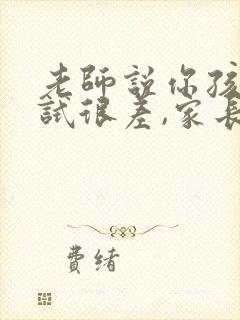 老師說你孩
試很差,家長
費緒